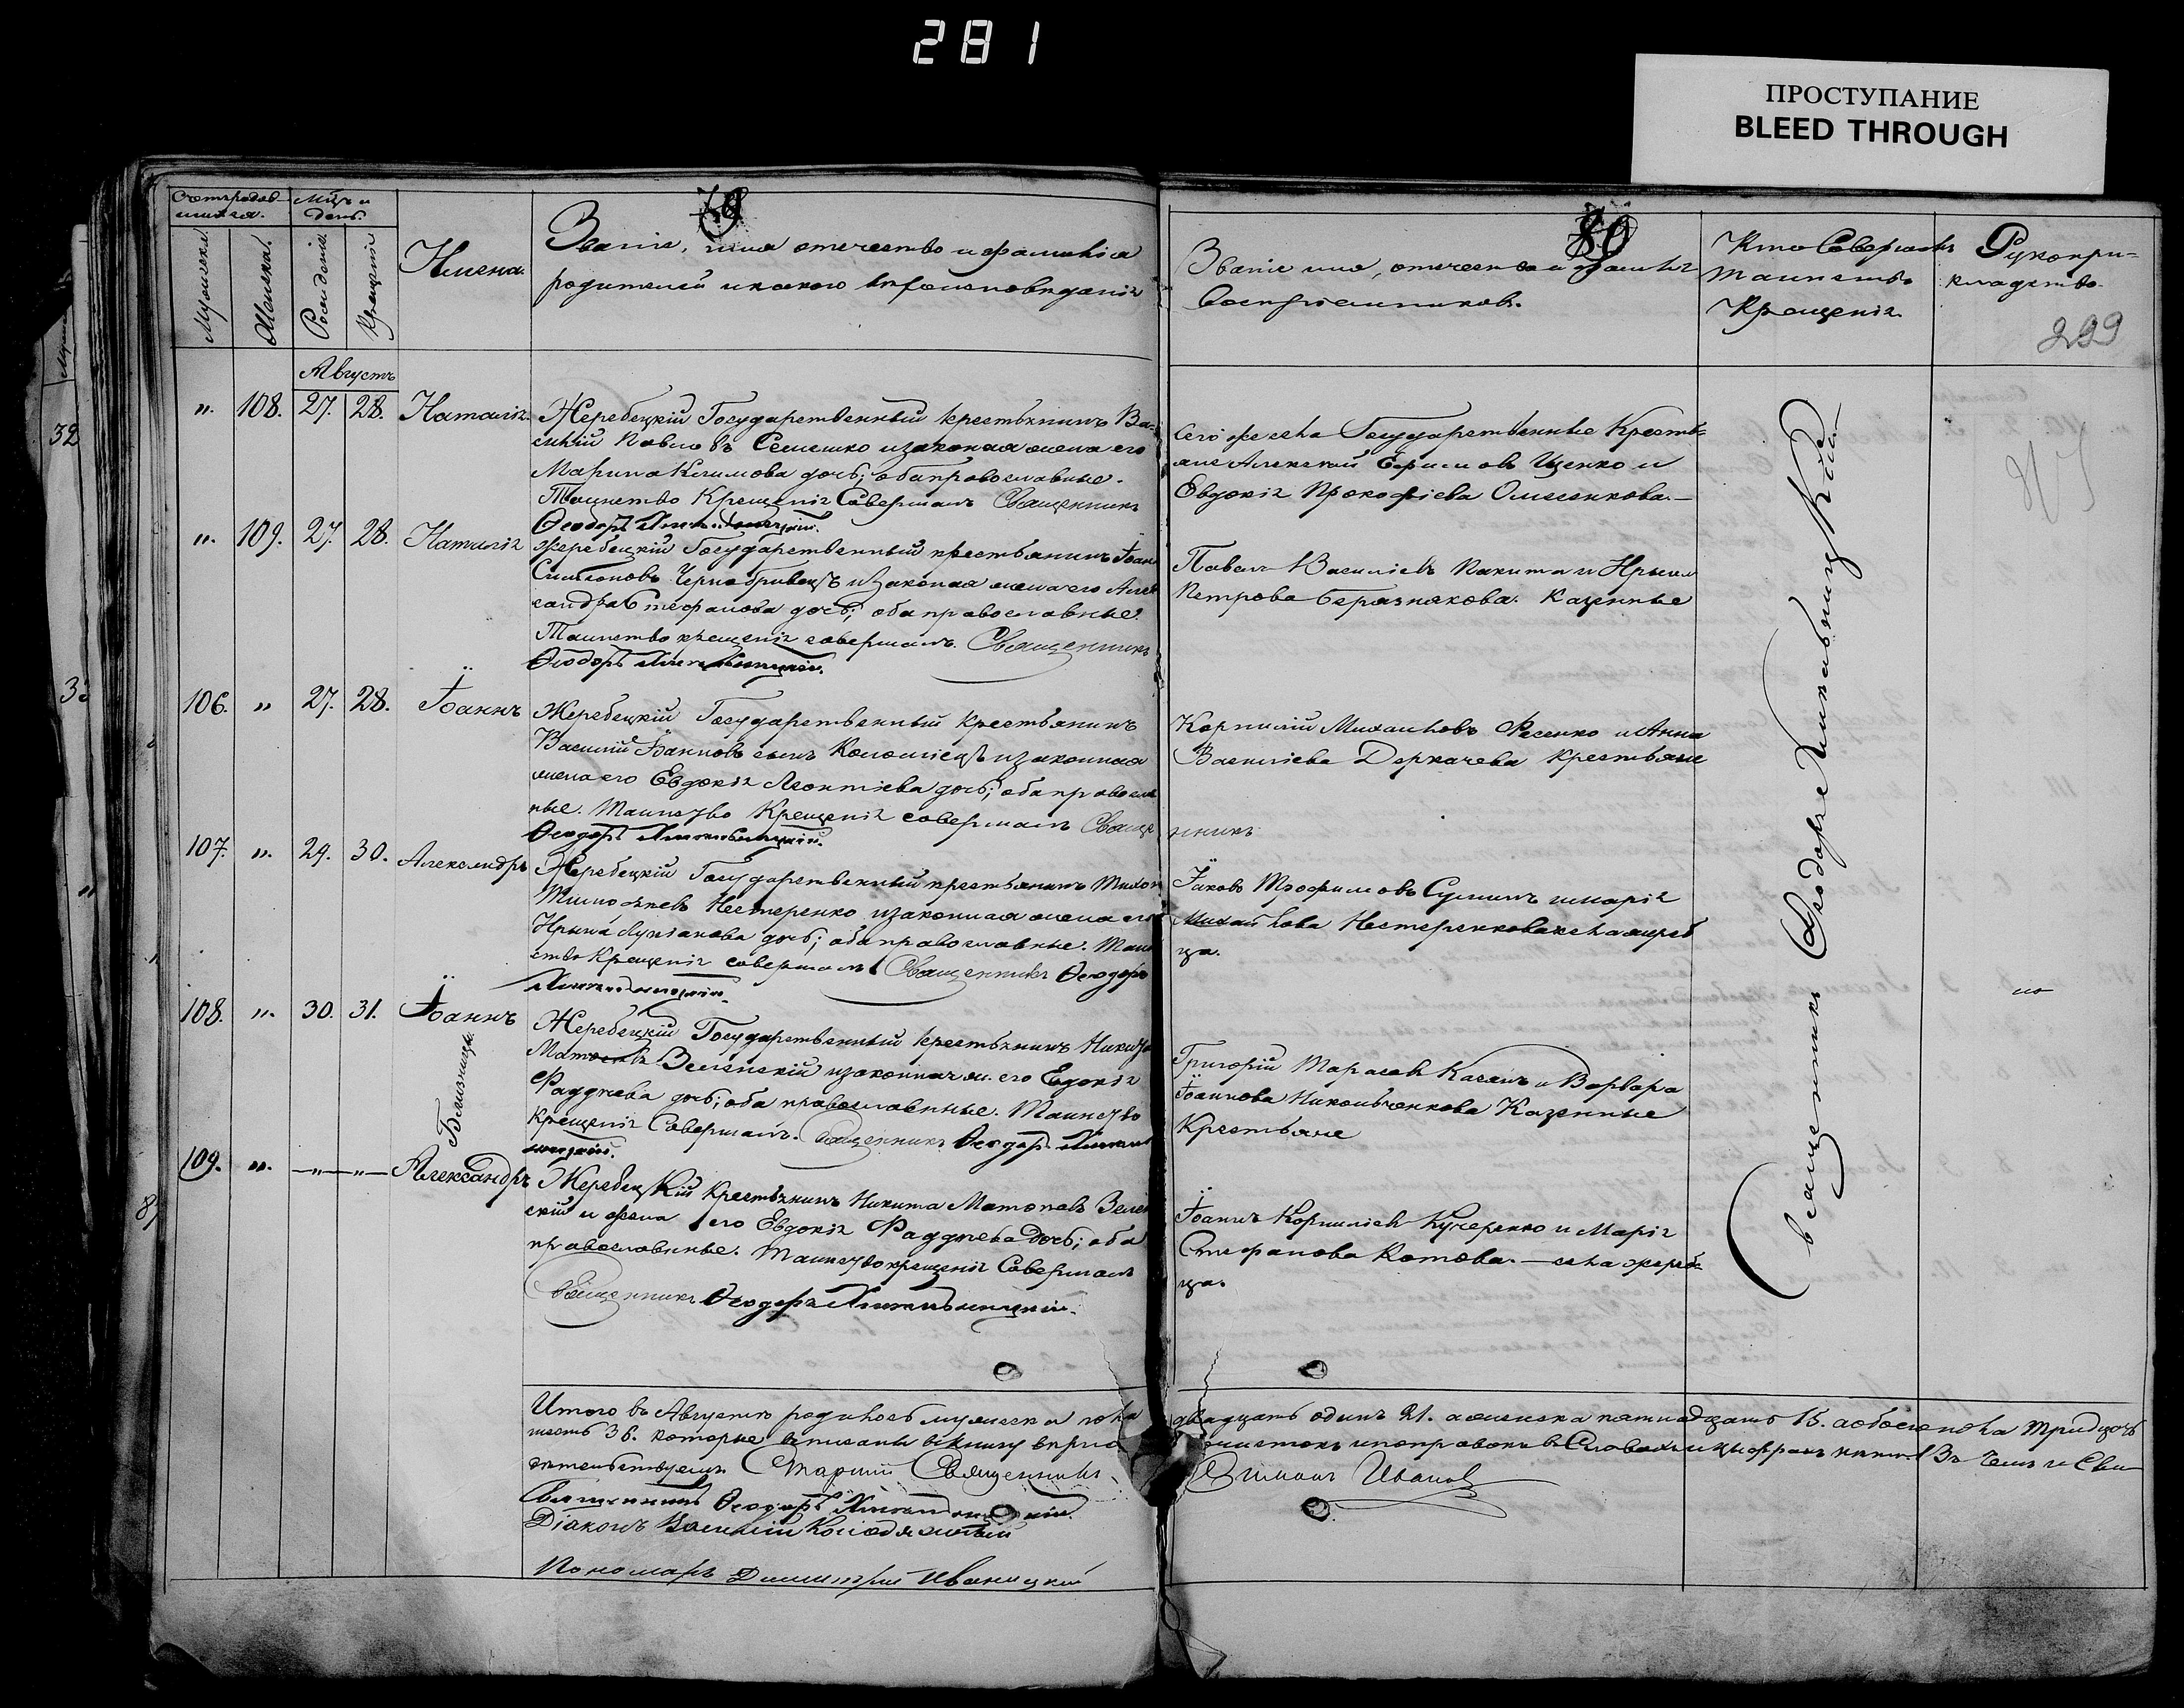 281
ПРОСТУПАНИЕ
BLEED THROUGH
79
80
Мужеска.
Женска.
Мѣсяцъ и день.
Рожденія
Крещенія
Имена.
Званіе, имя отечество и фамилія
родителей и какого вѣроисповѣданія
Званіе имя, отечество и фамилія
Воспріемниковъ.
Кто Совершалъ
Таинство
Крещенія.
Рукопри-
кладство.
299
Августъ
". 108. 27. 28. Наталія.
Жеребецкій Государственный крестьянинъ Ва-
силій Павловъ Семешко и законная жена его
Марина Климова дочь; оба православные.
Таинство Крещенія Совершалъ Священникъ
Ѳеодоръ
Сего же села Государственные Кресть-
яне Алексѣй Ефимовъ Іщенко и
Евдокія Прокофіева
". 109. 27. 28. Наталія
Жеребецкій Государственный крестьянинъ Іоаннъ
Симеоновъ Чернобривецъ и законная жена его Алек
сандра Стефанова дочь; оба православные.
Таинство крещенія совершалъ. Священникъ
Ѳеодоръ
Павелъ Василіевъ Пакита и Ирина
Петрова Березнякова. Казенные
106. " 27. 28. Іоаннъ
Жеребецкій Государственный крестьянинъ
Василій Іоанновъ сынъ Коломіецъ и законная
жена его Евдокія Леонтіева дочь; оба правосла
ные. Таинство Крещенія совершалъ Свяще нникъ
Ѳеодоръ
Корнилій Михаиловъ Фесенко и Анна
Василіева Деркачева Крестьяне
107. ". 29. 30. Александръ
Жеребецкій Государственный крестьянинъ Тихон
Тимофѣевъ Нестеренко и законная жена его
Ирина Лукіанова дочь; оба православные. Таин
ство Крещенія совершалъ Священникъ Ѳеодоръ
Іаковъ Трофимовъ Суминъ и Марія
Михайлова Нестеренкова села жереб
ца.
108. ". 30. 31. Іоаннъ
Близнецы.
Жеребецкій Государственный крестьянинъ Никита
Матоѳевъ Зеленскій и законная ж. его Евдокія
Фаддѣева дочь; оба православные. Таинство
Крещенія Совершалъ. Священникъ Ѳеодоръ
Григорій Тарасовъ Качанъ и Варвара
Іоаннова Никольченкова Казенные
Крестьяне
109. ". —"—"— Александръ
Жеребецкій Крестьянинъ Никита Матоѳевъ Зелен
скій и жена его Евдокія Фаддѣева дочь; оба
православные. Таинство крещенія Совершалъ
Священникъ Ѳеодоръ
Іоаннъ Корниліевъ Кучеренко и Марія
Стефанова Котова.— села жереб-
ца.
Священникъ Ѳеодоръ
Итого въ Августѣ родилось мужеска пола двадцать одинъ 21. а женска пятнадцать 15. а обоего пола тридцать
шесть 36. которые вписаны въ книгу
детельствуемъ Старшій Священникъ Симонъ Ивановъ
Священникъ Ѳеодоръ
Діаконъ Василій Колодяжный
Пономарь Димитрій Иваницкій